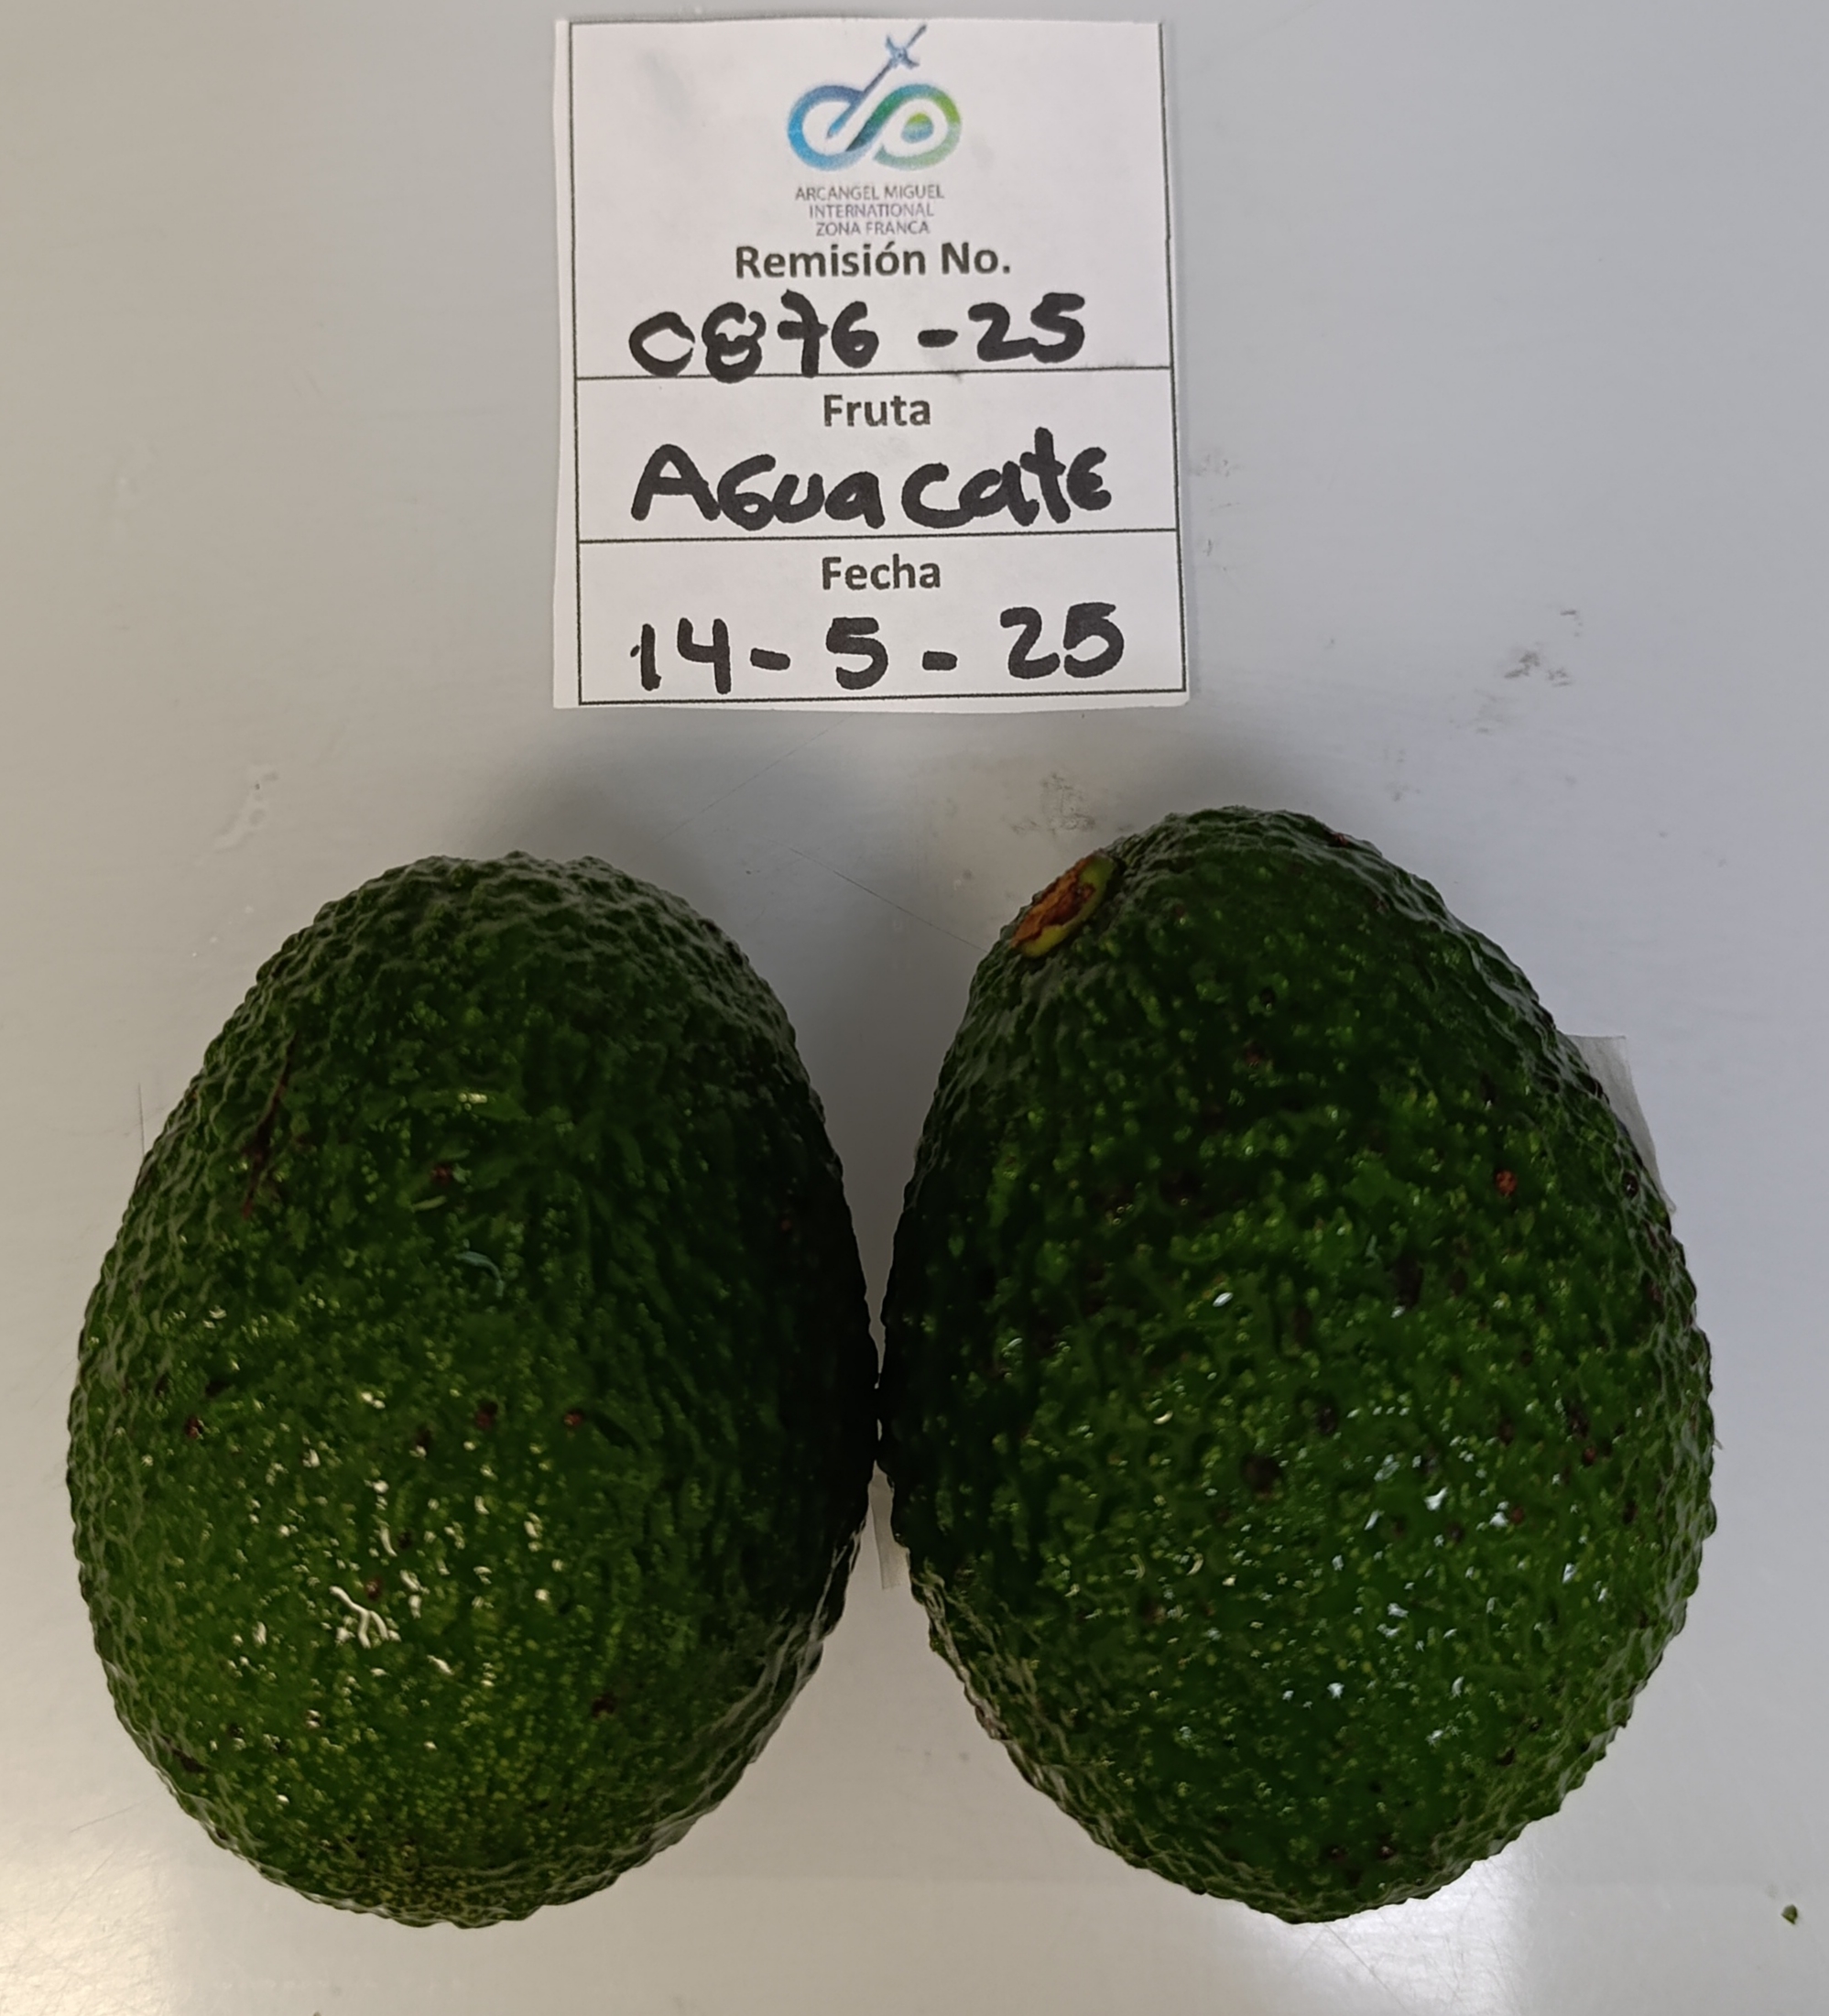 ARCANGEL MIGUEL
INTERNATIONAL
ZONA FRANCA
Remisión No.
0876 - 25
Fruta
AGuacate
Fecha
14 - 5 - 25